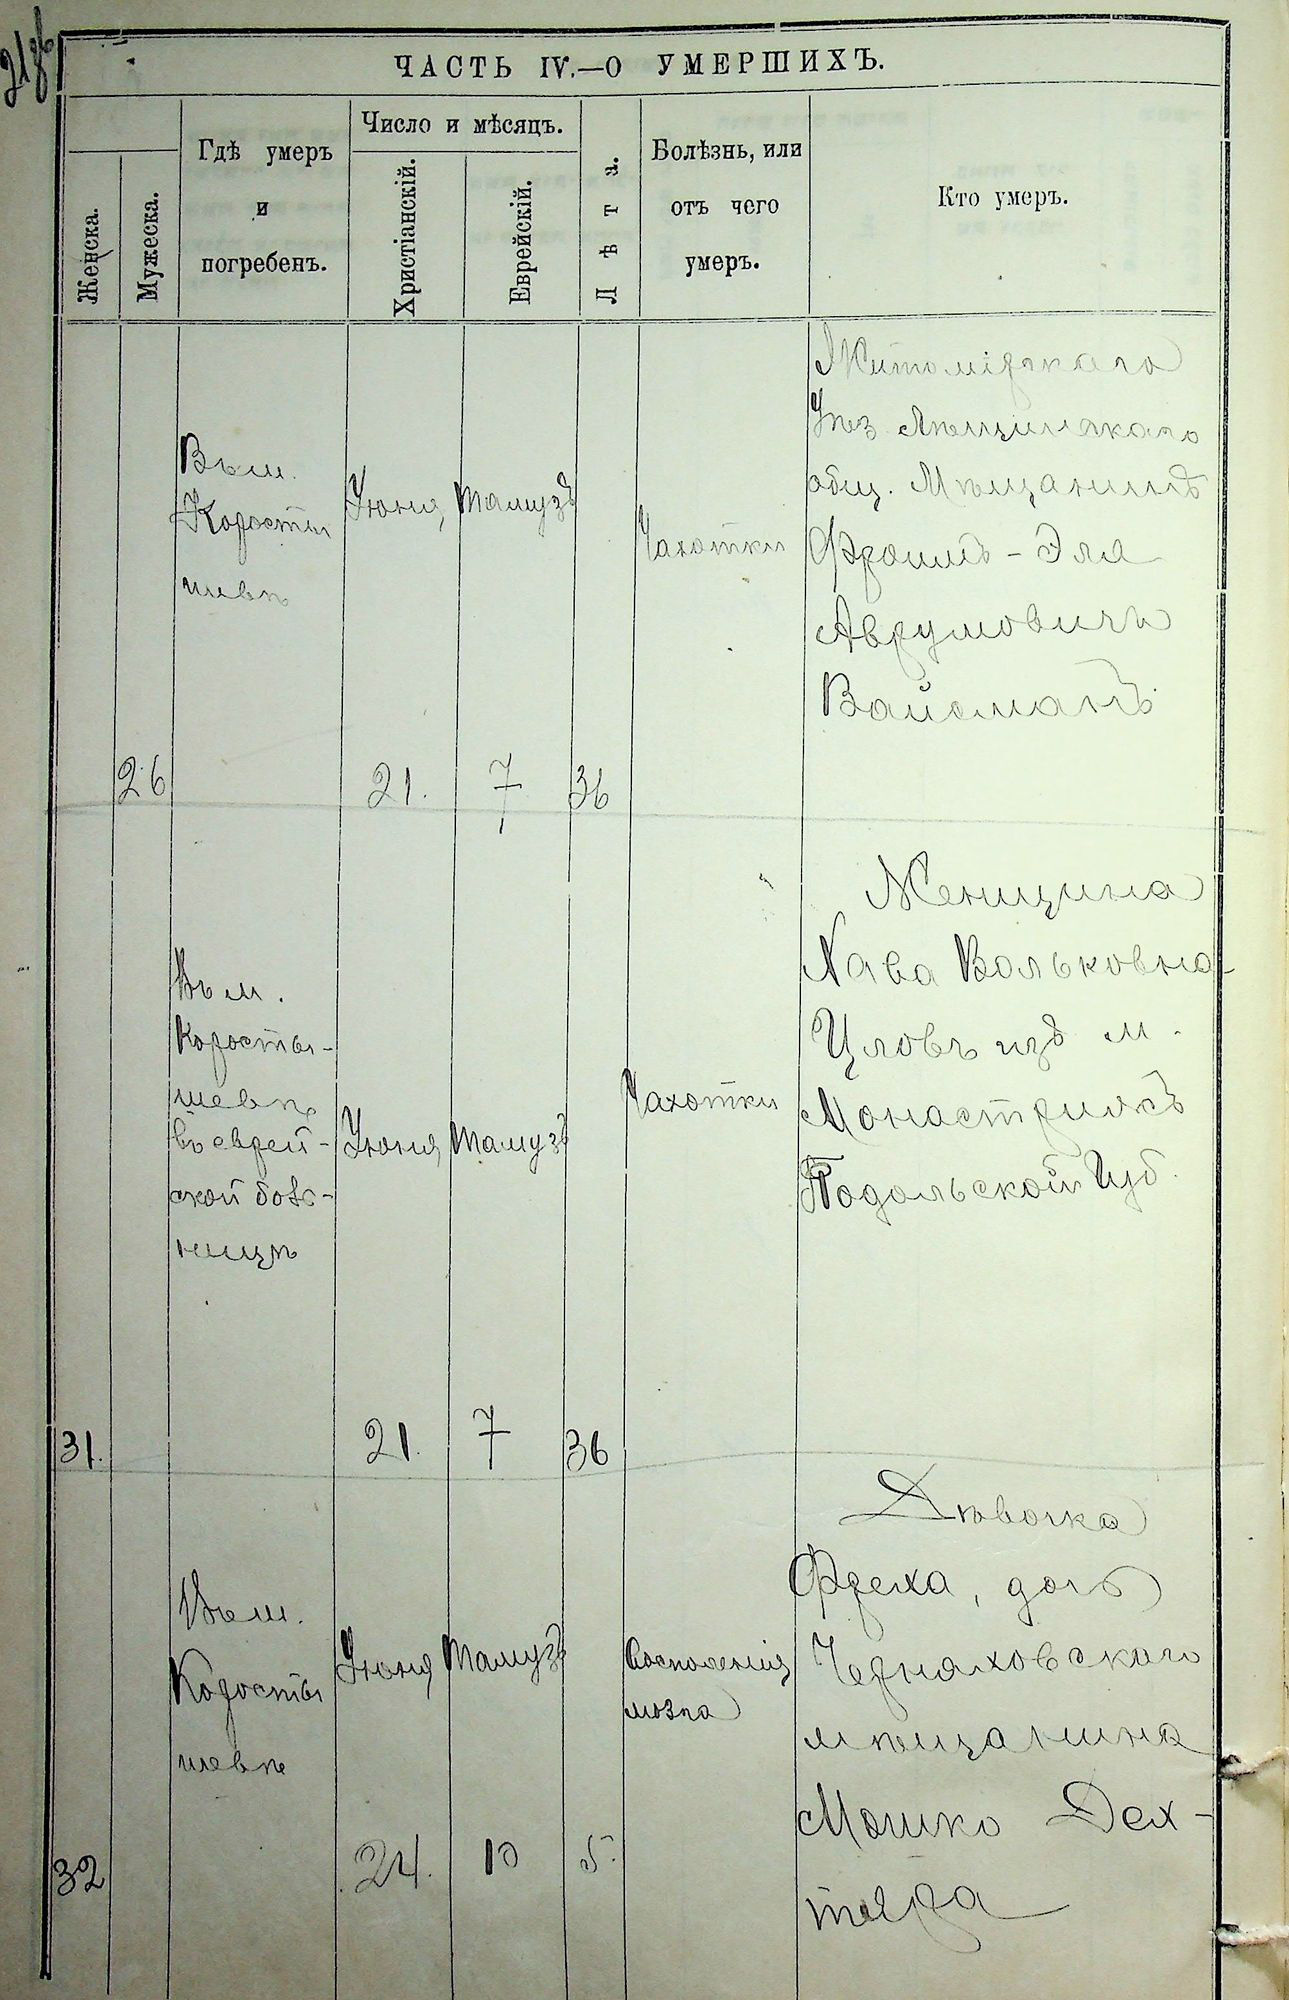 ЧАСТЬ IV.—О УМЕРШИХЪ.
Женска.
Мужеска.
Гдѣ умеръ
и
погребенъ.
Число и мѣсяцъ.
Христіанскій.
Еврейскій.
Лѣта.
Болѣзнь, или
отъ чего
умеръ.
Кто умеръ.
26
Въ м.
Корости
шевѣ
Іюня
21.
Тамузъ
7
36
Чахотки
Житомірскаго
Уѣз.
общ. Мѣщанинъ
Фроимъ-Эля
Аврумовичъ
Вайсманъ.
31.
Въ м.
Коросты-
шевѣ
въ еврей-
ской бол-
ницѣ
Іюня
21.
Тамузъ
7
36
Чахотки
Женщина
Хава Вольковна
изъ м.
Монастрискъ
Подольской Губ.
32
Въ м.
Коросты
шевѣ
Іюня
24.
Тамузъ
10
5.
Воспаленія
мозга
Дѣвочка
Фрейха, дочь
Черняховскаго
мѣщанина
Мошко Дех-
тяра